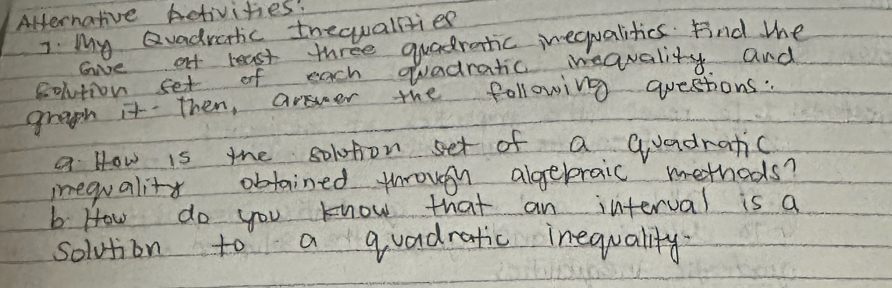 Alternative Activities:
1. My Quadratic Inequalities
Give at least three quadratic inequalities. Find the
solution set of each quadratic inequality and
graph it. Then, answer the following questions:
a. How is the solution set of a quadratic
inequality obtained through algebraic methods?
b. How do you know that an interval is a
solution to a quadratic inequality.